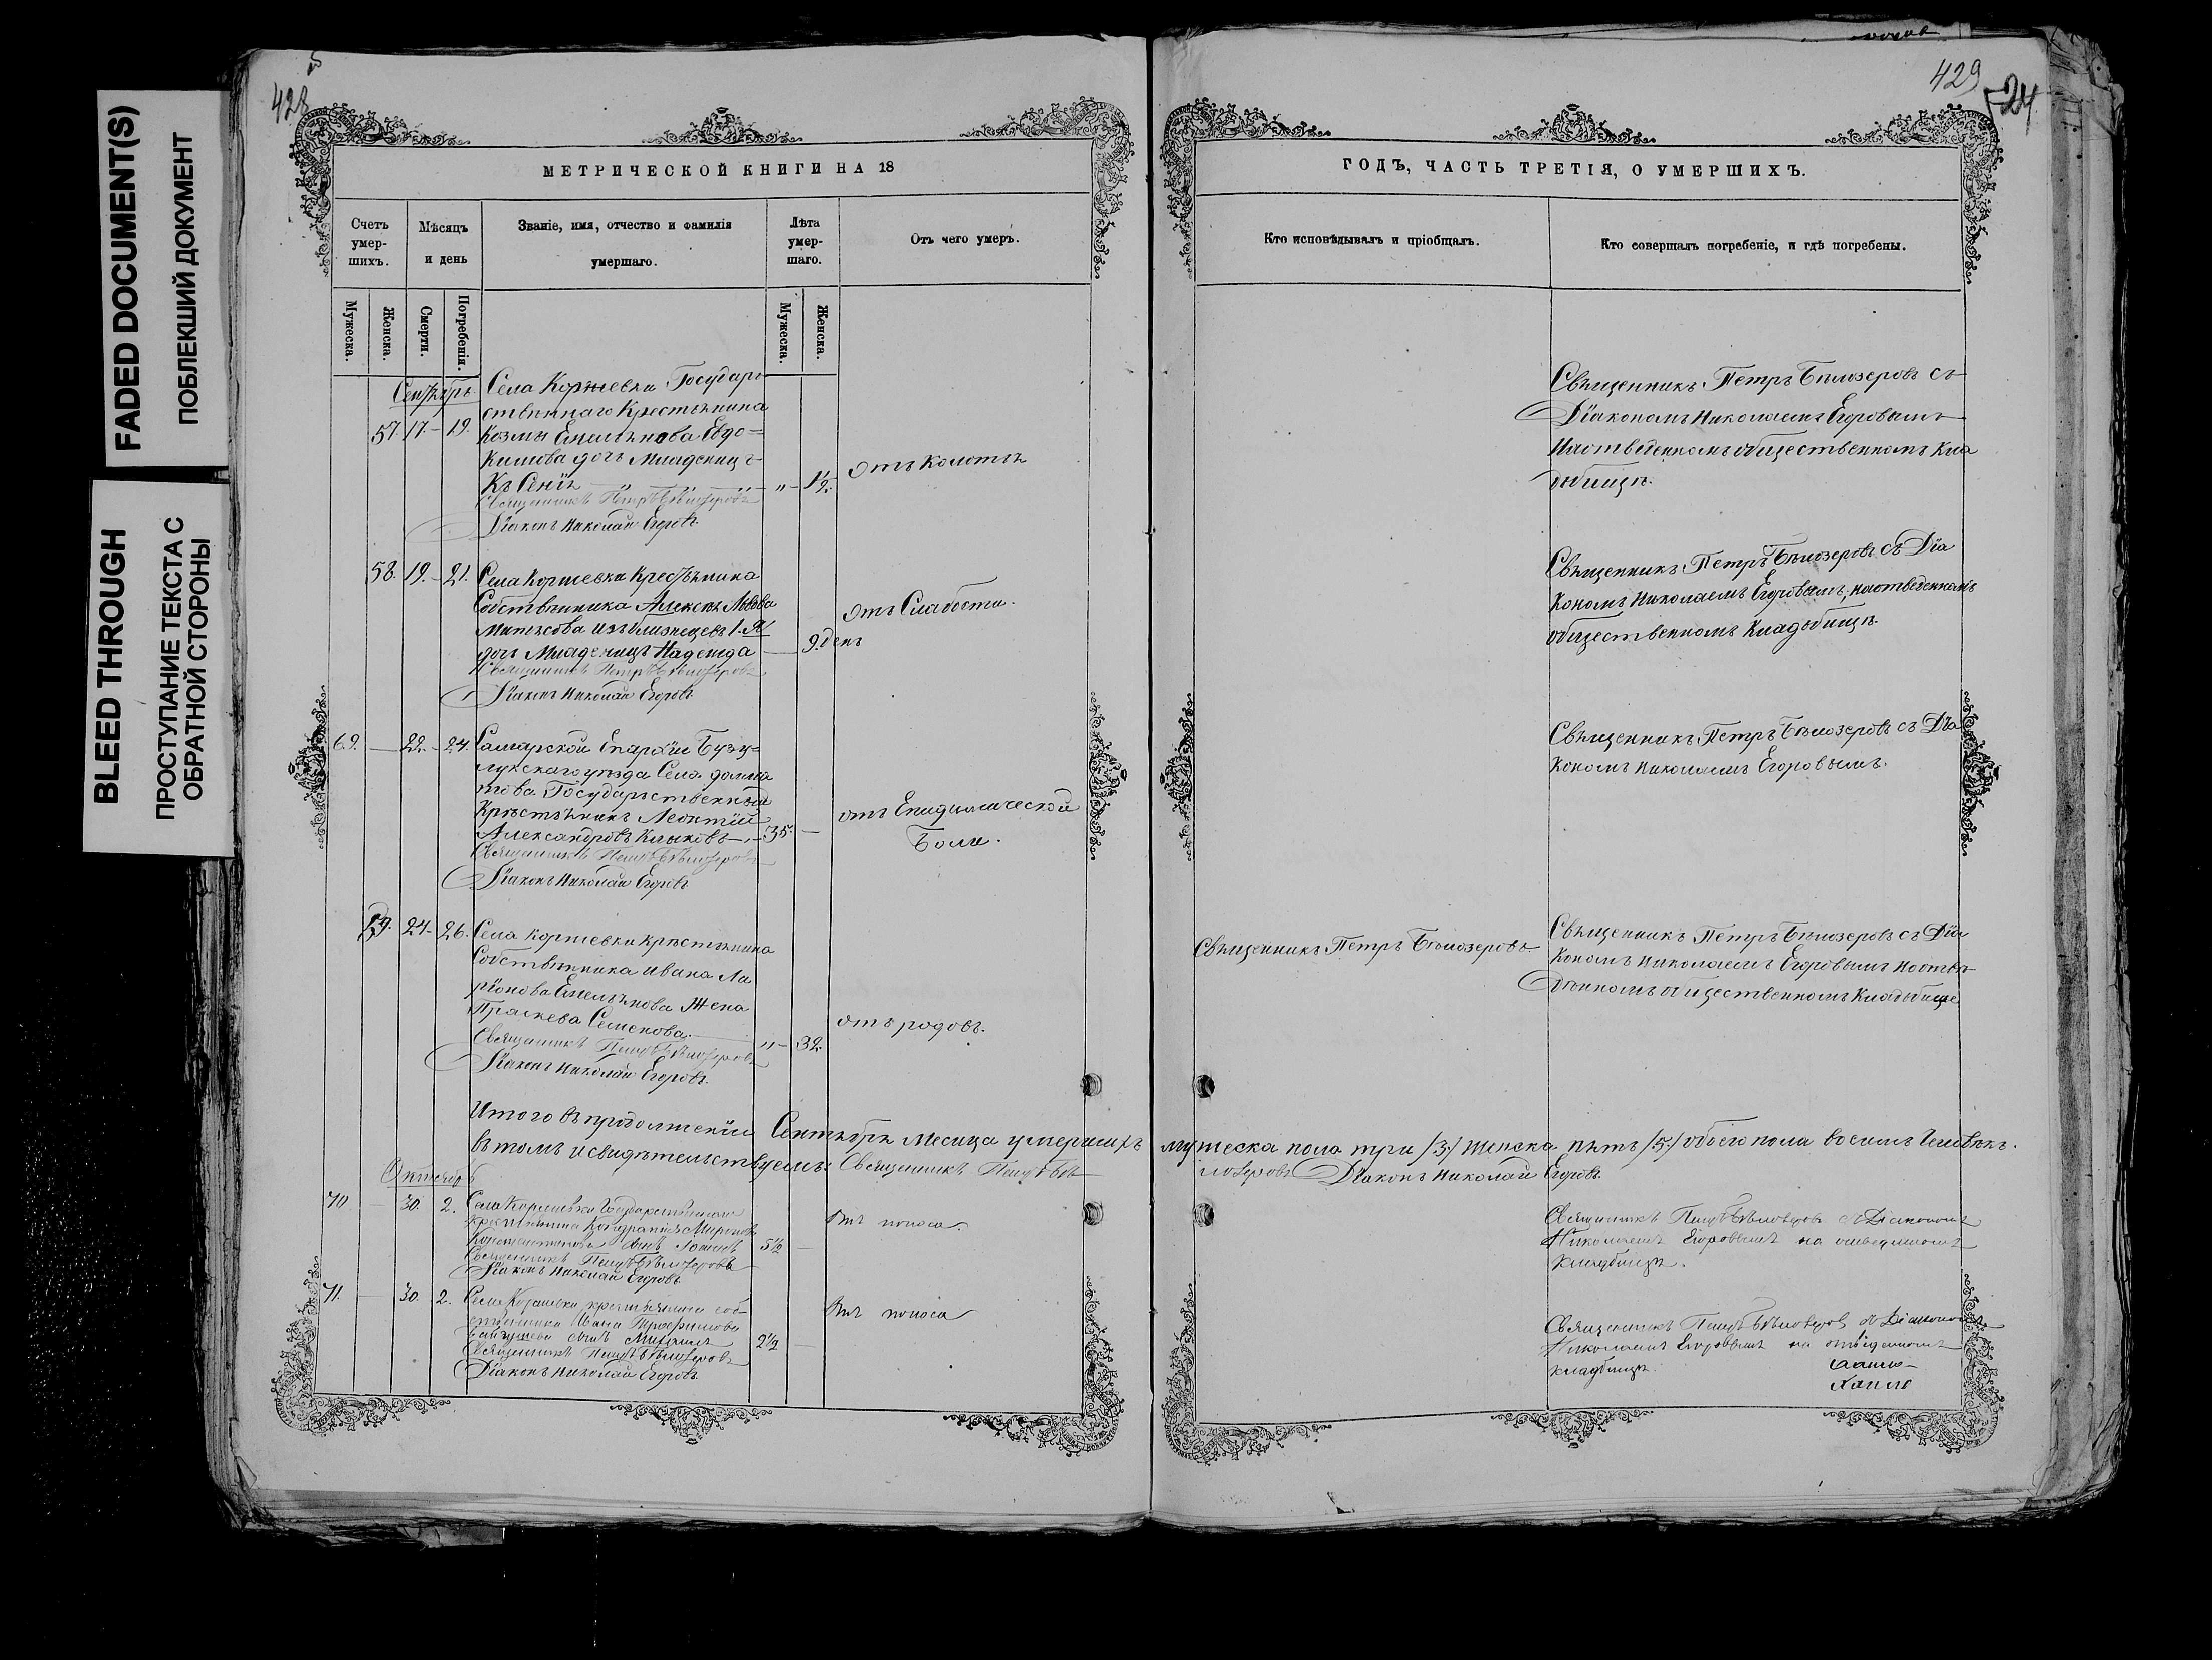 FADED DOCUMENT(S)
ПОБЛЕКШИЙ ДОКУМЕНТ
BLEED THROUGH
ПРОСТУПАНИЕ ТЕКСТА С
ОБРАТНОЙ СТОРОНЫ
428
МЕТРИЧЕСКОЙ КНИГИ НА 18
Счетъ умер-шихъ.
Мѣсяцъ и день
Званіе, имя, отчество и фамилія умершаго.
Лѣта умер-шаго.
Отъ чего умеръ.
Мужеска.
Женска.
Смерти.
Погребенія.
Мужеска.
Женска.
Сентябрь
Села Коржевки Государ
ственнаго Крестьянина
57. 17. 19. Козмы Емильянова Евдо=
кимова дочь Младениц
Ксенія 1½. отъ Колотья
Священникъ Петръ Бѣлозеровъ
Діаконъ Николай Егоровъ
58. 19. 21. Села Коржевки Крестьянина
Собственника Алексѣя Львова
изъ близнецовъ
дочь Младениц Надежда 9. ден
отъ Слабости.
Священникъ Петръ Бѣлозеровъ
Діаконъ Николай Егоровъ
69. 22. 24. Самарской Епархіи Бузу=
лукскаго уѣзда Села
Государственный
Крестьянинъ Леонтій
Александровъ Клыковъ 35.
отъ Епидимической
Боли.
Священникъ Петръ Бѣлозеровъ
Діаконъ Николай Егоровъ
59. 24. 26. Села Коржевки Крестьянина
Собственника Ивана Ла
ріонова Емельянова Жена
Праскева Семенова. 32.
отъ родовъ.
Священникъ Петръ Бѣлозеровъ
Діаконъ Николай Егоровъ.
Итого въ продолженіи Сентября Месяца умершихъ
въ томъ и свидѣтельствуемъ: Священникъ Петръ Бѣ
Октябрь
70. 30. 2. Села Коржевки Государственнаго
крестьянина Миронова
сынъ 5½
отъ поноса.
Священникъ Петръ Бѣлозеровъ
Діаконъ Николай Егоровъ
71. 30. 2. Села Коржевки крестьянина соб-
ственника Ивана Трофимова
сынъ Михаилъ 2½
отъ поноса
Священникъ Петръ Бѣлозеровъ
Діаконъ Николай Егоровъ
429
ГОДЪ, ЧАСТЬ ТРЕТІЯ, О УМЕРШИХЪ.
Кто исповѣдывалъ и пріобщалъ.
Кто совершалъ погребеніе, и гдѣ погребены.
Священникъ Петръ Бѣлозеровъ съ
Діакономъ Николаемъ Егоровымъ
Наотведенномъ общественномъ Кла
дбищѣ.
Священникъ Петръ Бѣлозеровъ съ Діа
кономъ Николаемъ Егоровымъ, наотведенномъ
общественномъ Кладбищѣ.
Священникъ Петръ Бѣлозеровъ съ Діа
кономъ Николаемъ Егоровымъ.
Священникъ Петръ Бѣлозеровъ
Священникъ Петръ Бѣлозеровъ съ Діа
кономъ Николаемъ Егоровымъ Наотве
денномъ общественномъ Кладбище
мужеска пола три /3/ Женска пять /5/ обоего пола восемь Человѣкъ.
лозеровъ Діаконъ Николай Егоровъ.
Священникъ Петръ Бѣлозеровъ съ Діакономъ
Николаемъ Егоровымъ на отведенномъ
кладбищѣ.
Священникъ Петръ Бѣлозеровъ съ Діакономъ
Николаемъ Егоровымъ на отведенномъ
кладбищѣ.